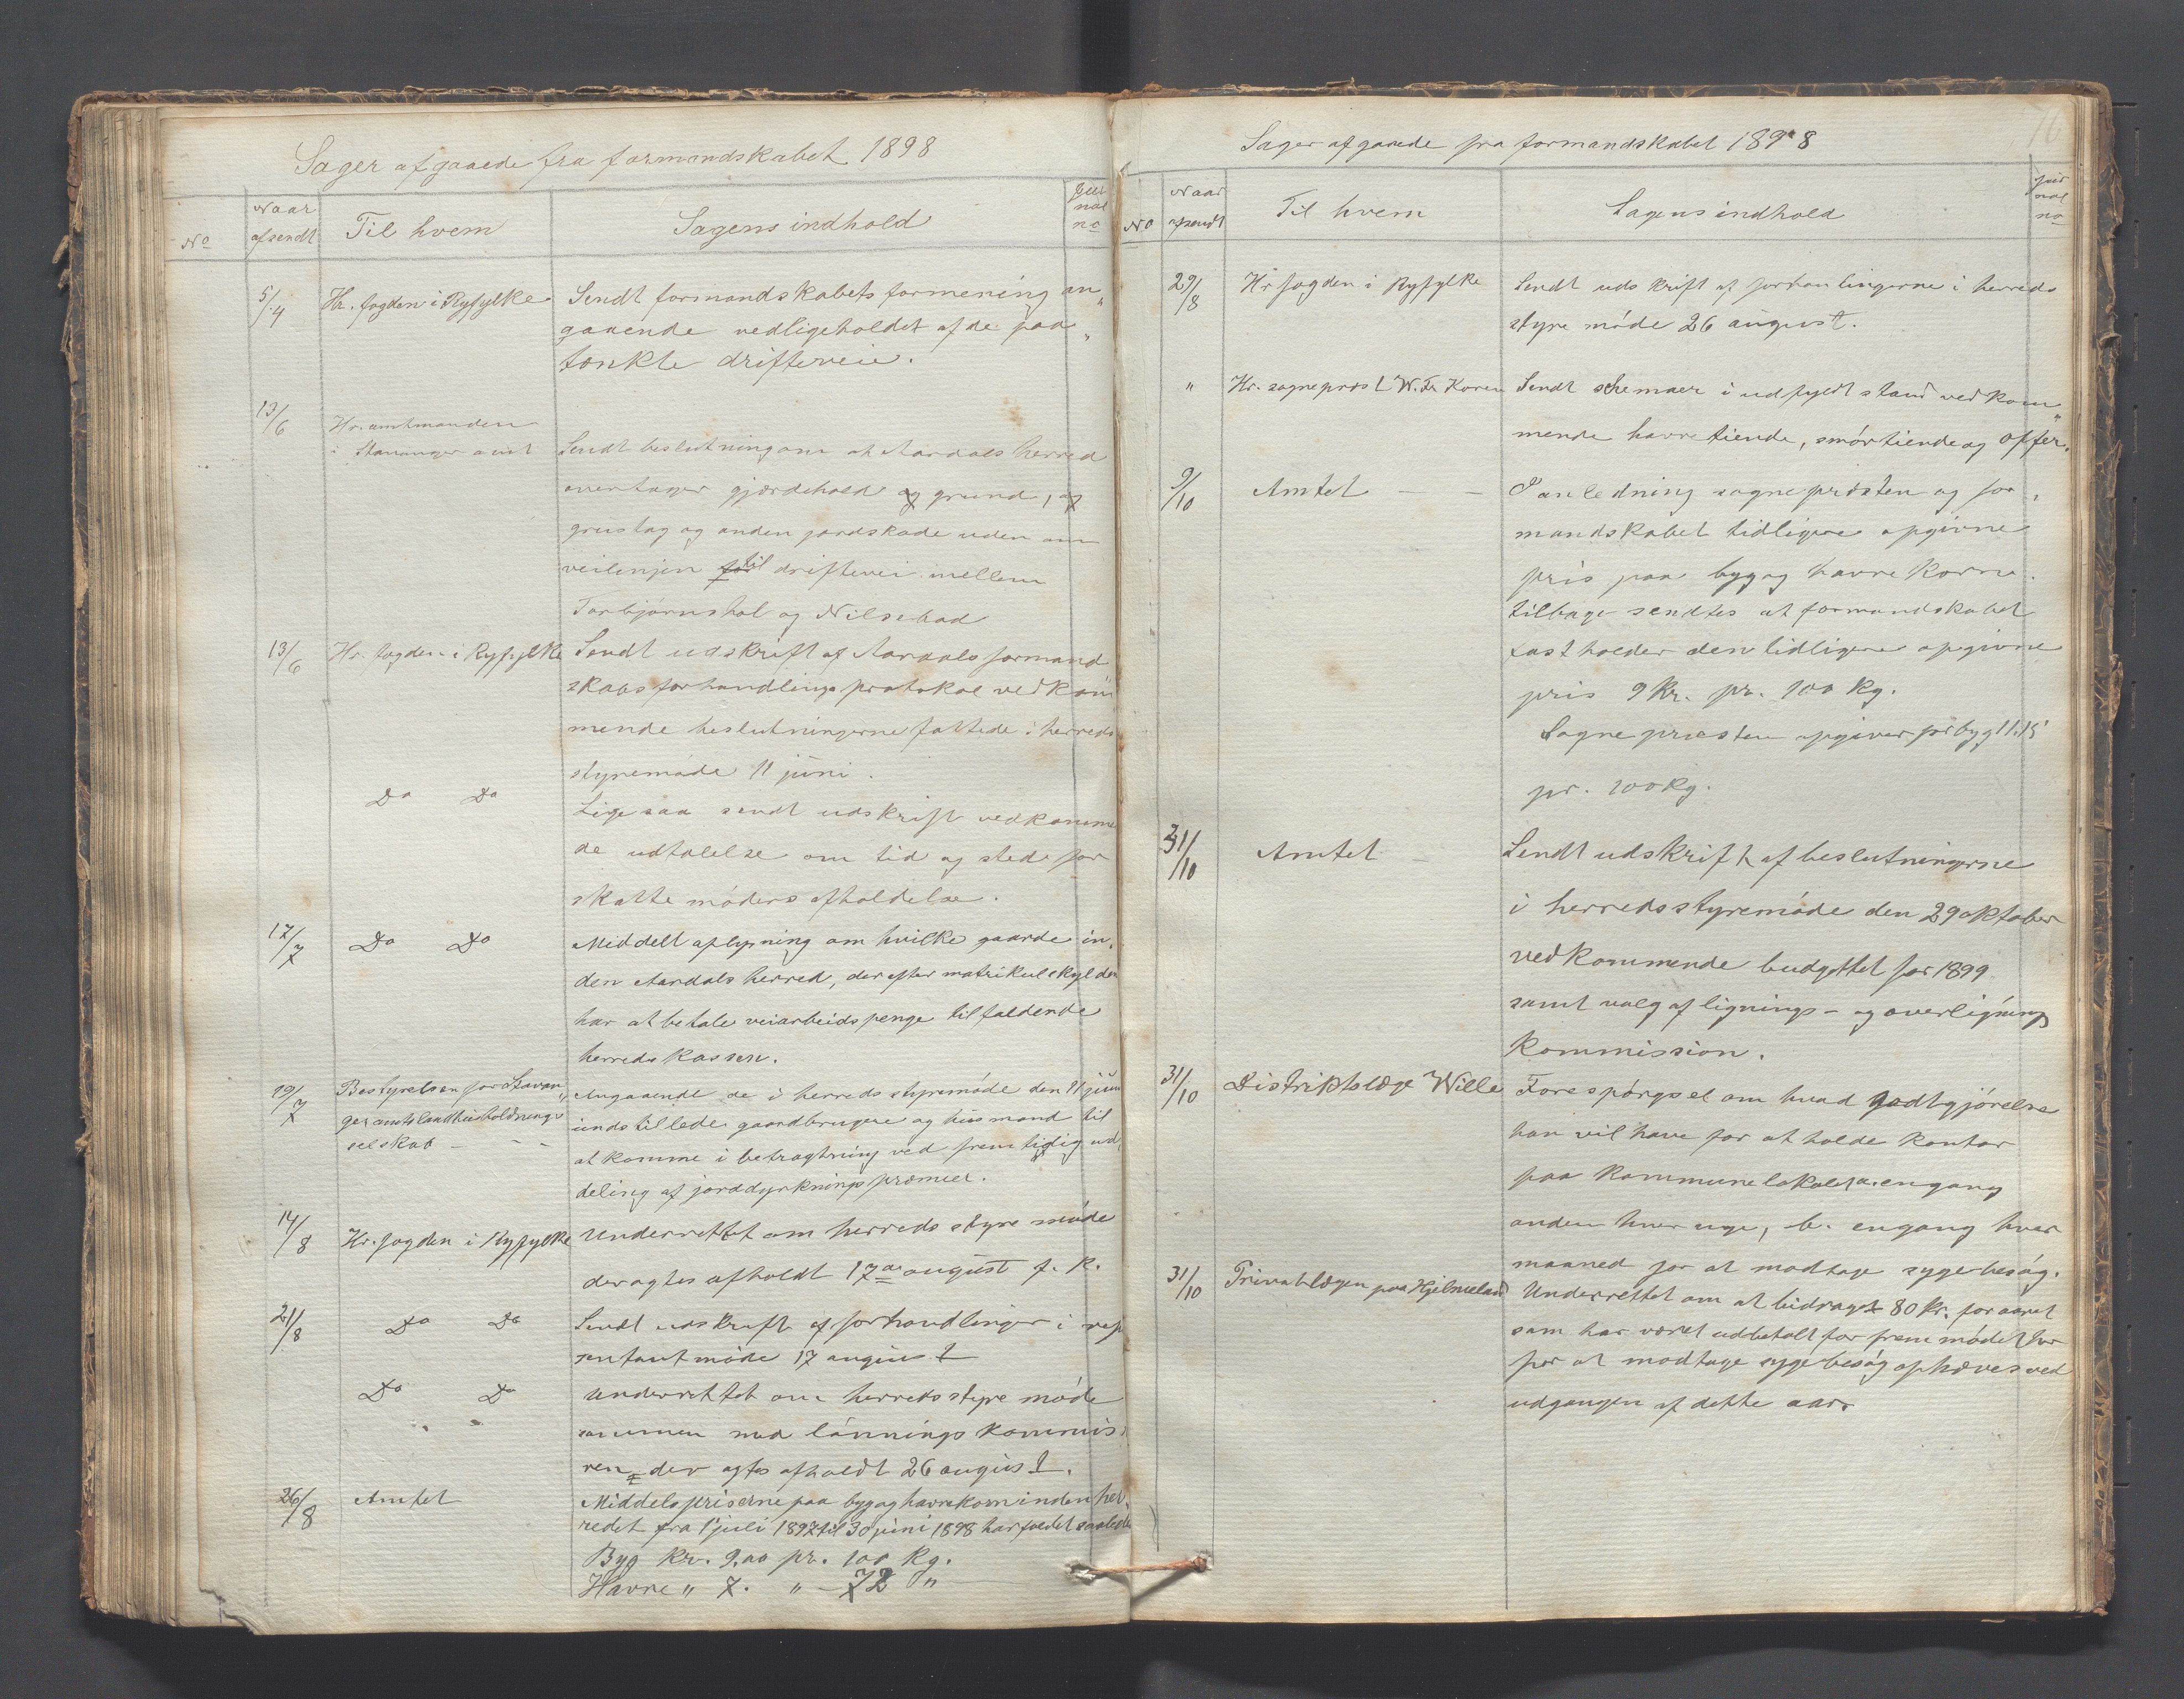 Sager afgaaede fra formandskabet 1898
No
Naar afsendt
Til hvem
Sagens indhold
Jur nal no
5/4 Hr. fogden i Ryfylke Sendt formandskabets formening an„
gaaende vedligeholdet af de paa„
tænkte drifteveie.
13/6 Hr. amtmanden
i Stavanger amt Sendt beslutning om at Aardals herred
overtager gjærdehold og grund, og
grustag og anden jordskade uden om
veilinjen for til driftevei mellem
Torbjørnshol og Nilsebod
13/6 Hr. fogden i Ryfylke Sendt udskrift af Aardals formand
skabsforhandlings protokol vedkom
mende beslutningerne fattede i herreds
styremøde 11 juni.
Do Do Ligesaa sendt udskrift vedkomme
de udtalelse om tid og sted for
skatte møders afholdelse.
17/7 Do Do Middelt oplysning om hvilke gaarde in„
den Aardals herred, der efter matrikulskylden
har at betale veiarbeidspenge tilfaldende
herredskassen.
19/7 Bestyrelsen for Stavan„ Angaaende de i herredsstyremøde den 11 juni
ger amts landhusholdnings indstillede gaardbrugere og husmænd til
selskab – – – at komme i betragtning ved fremtidig ud„
deling af jorddyrkningspræmier.
14/8 Hr. fogden i Ryfylke Underrettet om herredsstyre møde
der agtes afholdt 17de august f. k.
21/8 Do Do Sendt udskrift af forhandlinger i rep
sentantmøde 17 august
Do Do Underrettet om herredsstyre møde
sammen med lønnings kommis
ren der agtes afholdt 26 august.
26/8 Amtet Middelspriserne paa byg og havrekorn inden her„
redet fra 1 juli 1897 til 30 juni 1898 har faldet saaledes
Byg Kr. 9,00 pr. 100 Kg.
Havre „ 7. „ – 72 „
16
Sager afgaaede fra formandskabet 1898
No
Naar afsendt
Til hvem
Sagens indhold
jur nal no
29/8 Hr fogden i Ryfylke Sendt udskrift af forhanlingerne i herreds
styre møde 26 august.
„ Hr. sogneprest W. Fr Koren Sendt schemaer i udfyldt stand vedkom„
mende havretiende, smørtiende og offer.
9/10 Amtet – – I anledning sognepræsten og for„
mandskabet tidligere opgivne
pris paa byg og havre korn.
tilbage sendtes at formandskabet
fastholder den tidligere opgivne
pris 9 Kr. pr. 100 Kg.
Sognepræsten opgiver for byg 11.15
pr. 100 Kg.
31/10 Amtet – Sendt udskrift af beslutningerne
i herredsstyremøde den 29 oktober
vedkommende budgettet for 1899
samt valg af lignings- og overlignings
kommission.
31/10 Distriktslæge Wille Forespørgsel om hvad godtgjørelse
han vil have for at holde kontor
paa kommunelokalet a. engang
anden hver uge, b. engang hver
maaned for at modtage sygebesøg.
31/10 Privatlægen paa Hjelmeland Underrettet om at bidraget 80 kr. for aaret
som har været udbetalt for fremmødet her
for at modtage sygebesøg ophæves ved
udgangen af dette aar.